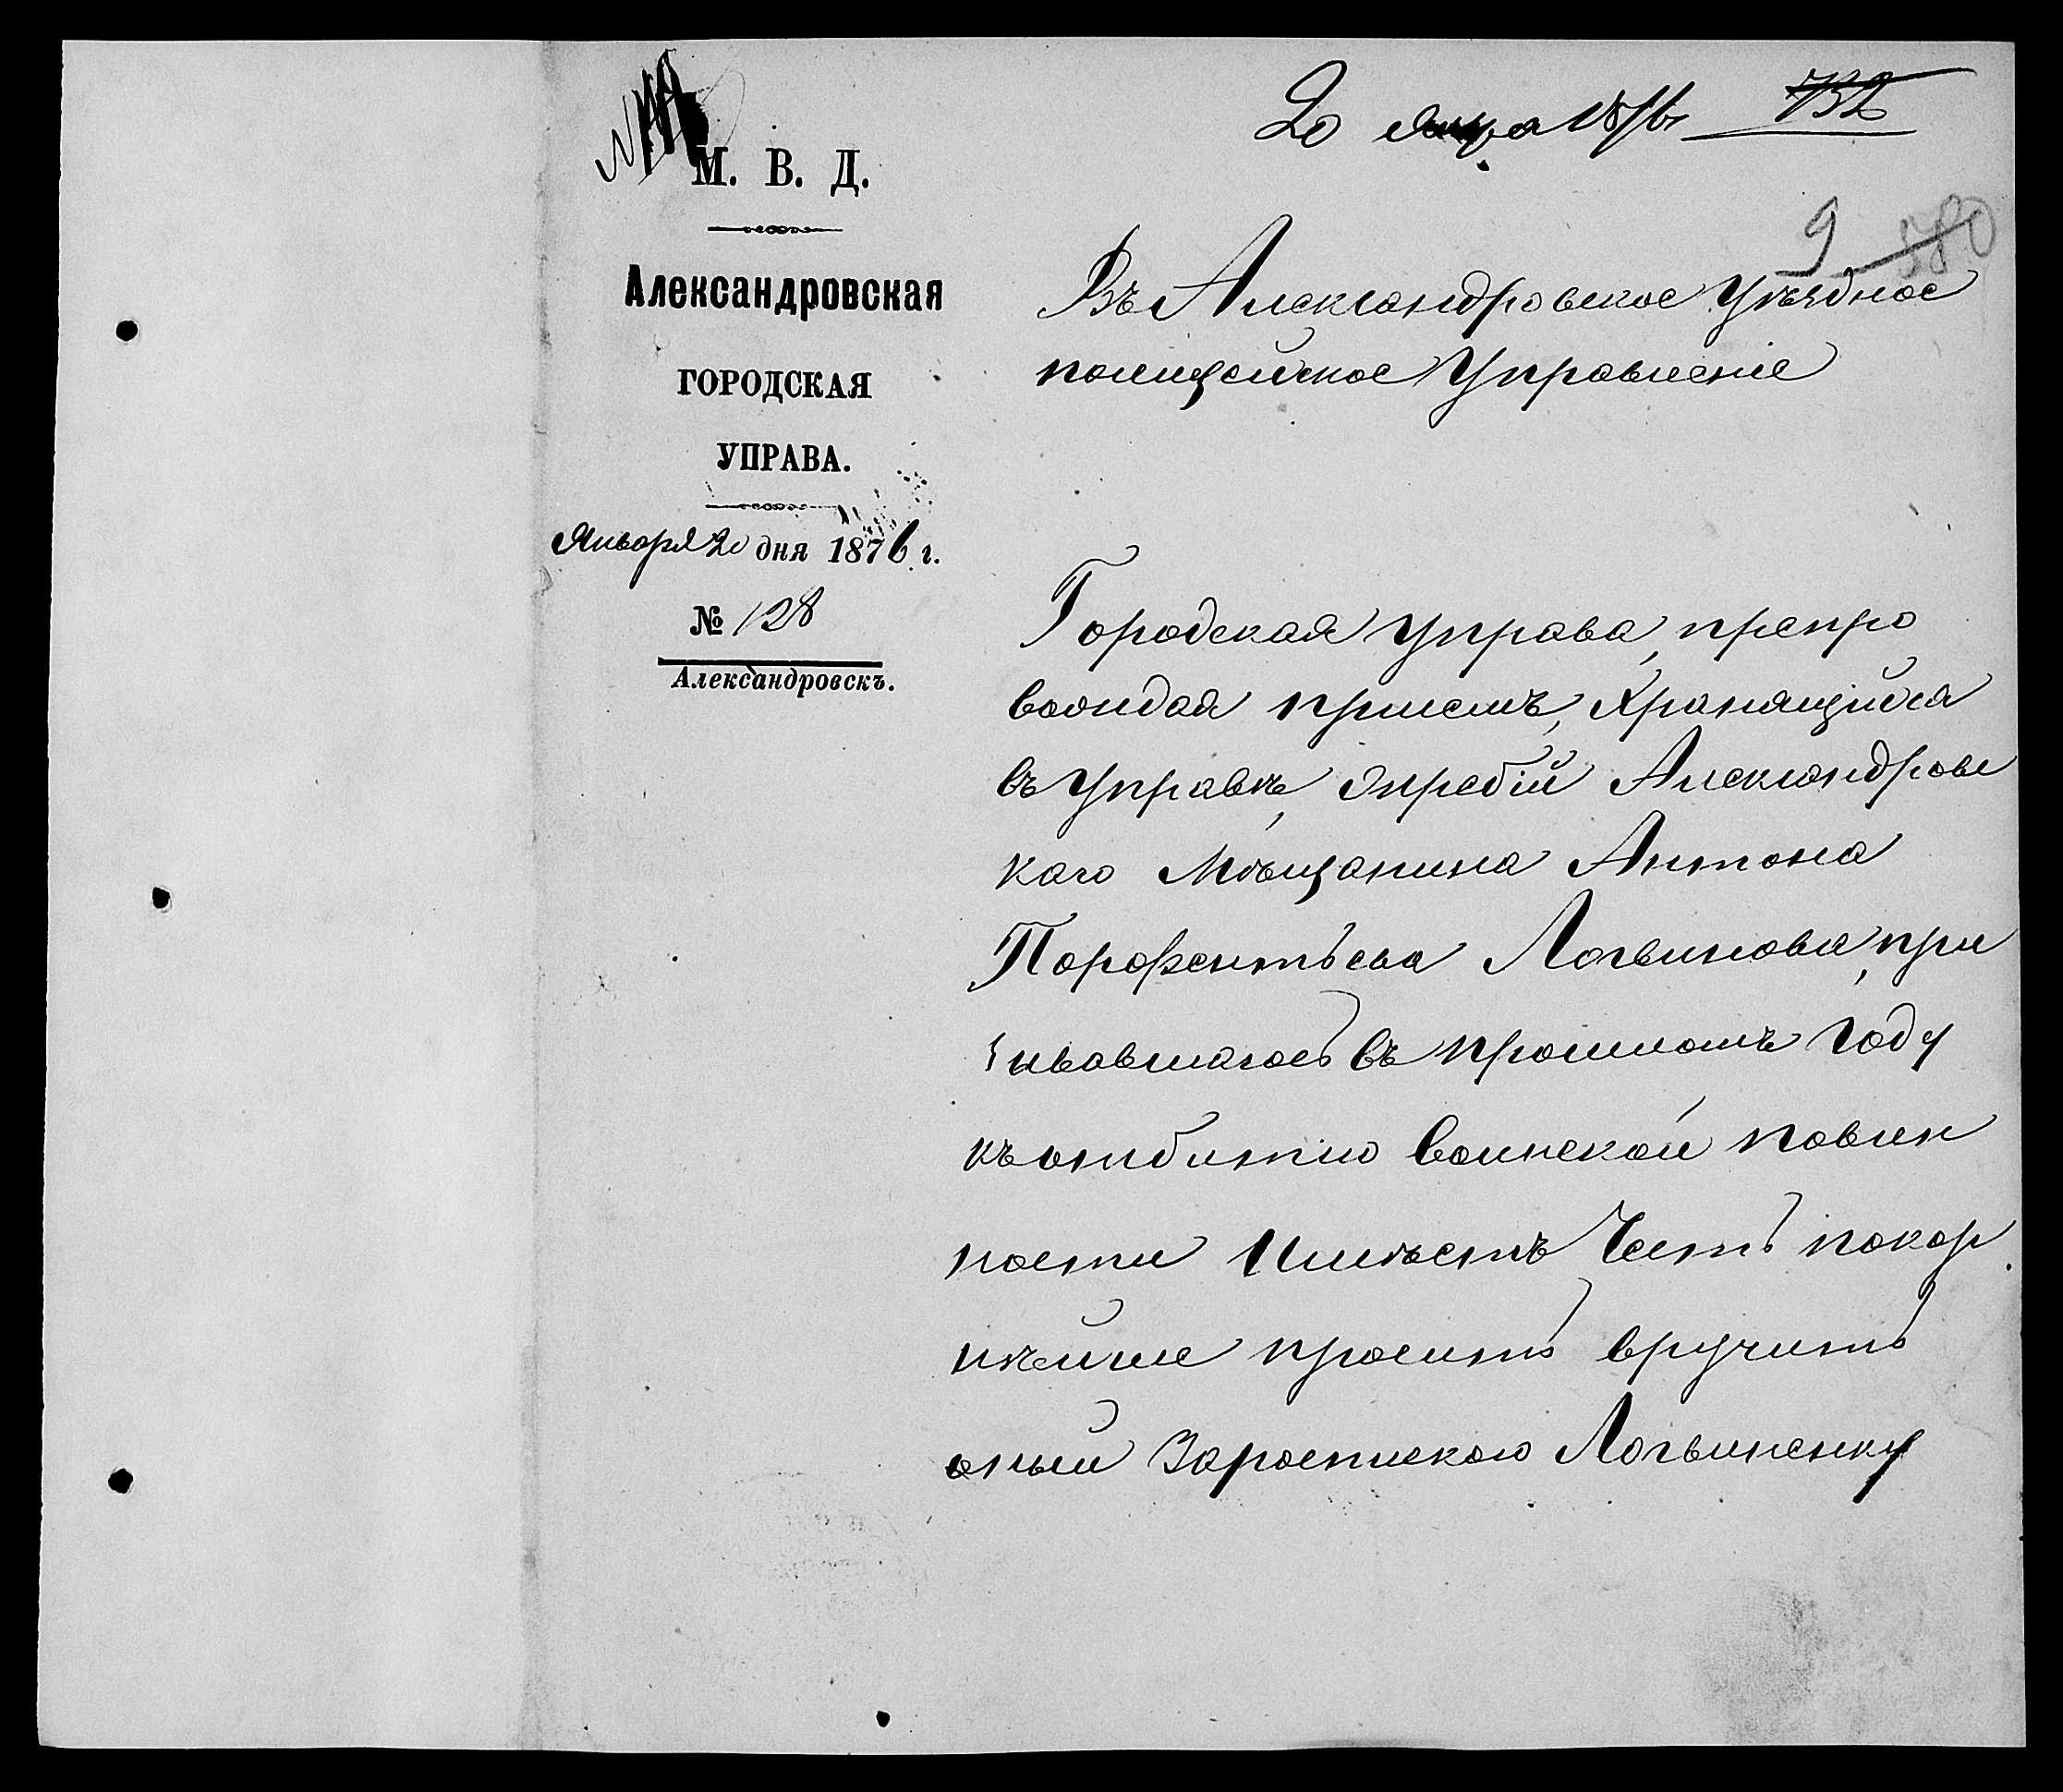 М. В. Д.
Александровская
ГОРОДСКАЯ
УПРАВА.
Января 20 дня 1876 г.
№ 128
Александровскъ.
20 1876 г 732
9 580
Въ Александровское Уѣздное
полицейское Управленіе
Городская Управа, препро
вождая при семъ, хранящійся
въ Управѣ, жребій Александровс
каго Мѣщанина Антона
Парфентьева Логвинова, при
зывавшагось въ прошломъ году
къ отбитію воинской повин
ности имѣетъ честь покор
нѣйше просить вручить
оный ЗаросписKою Логвиненку